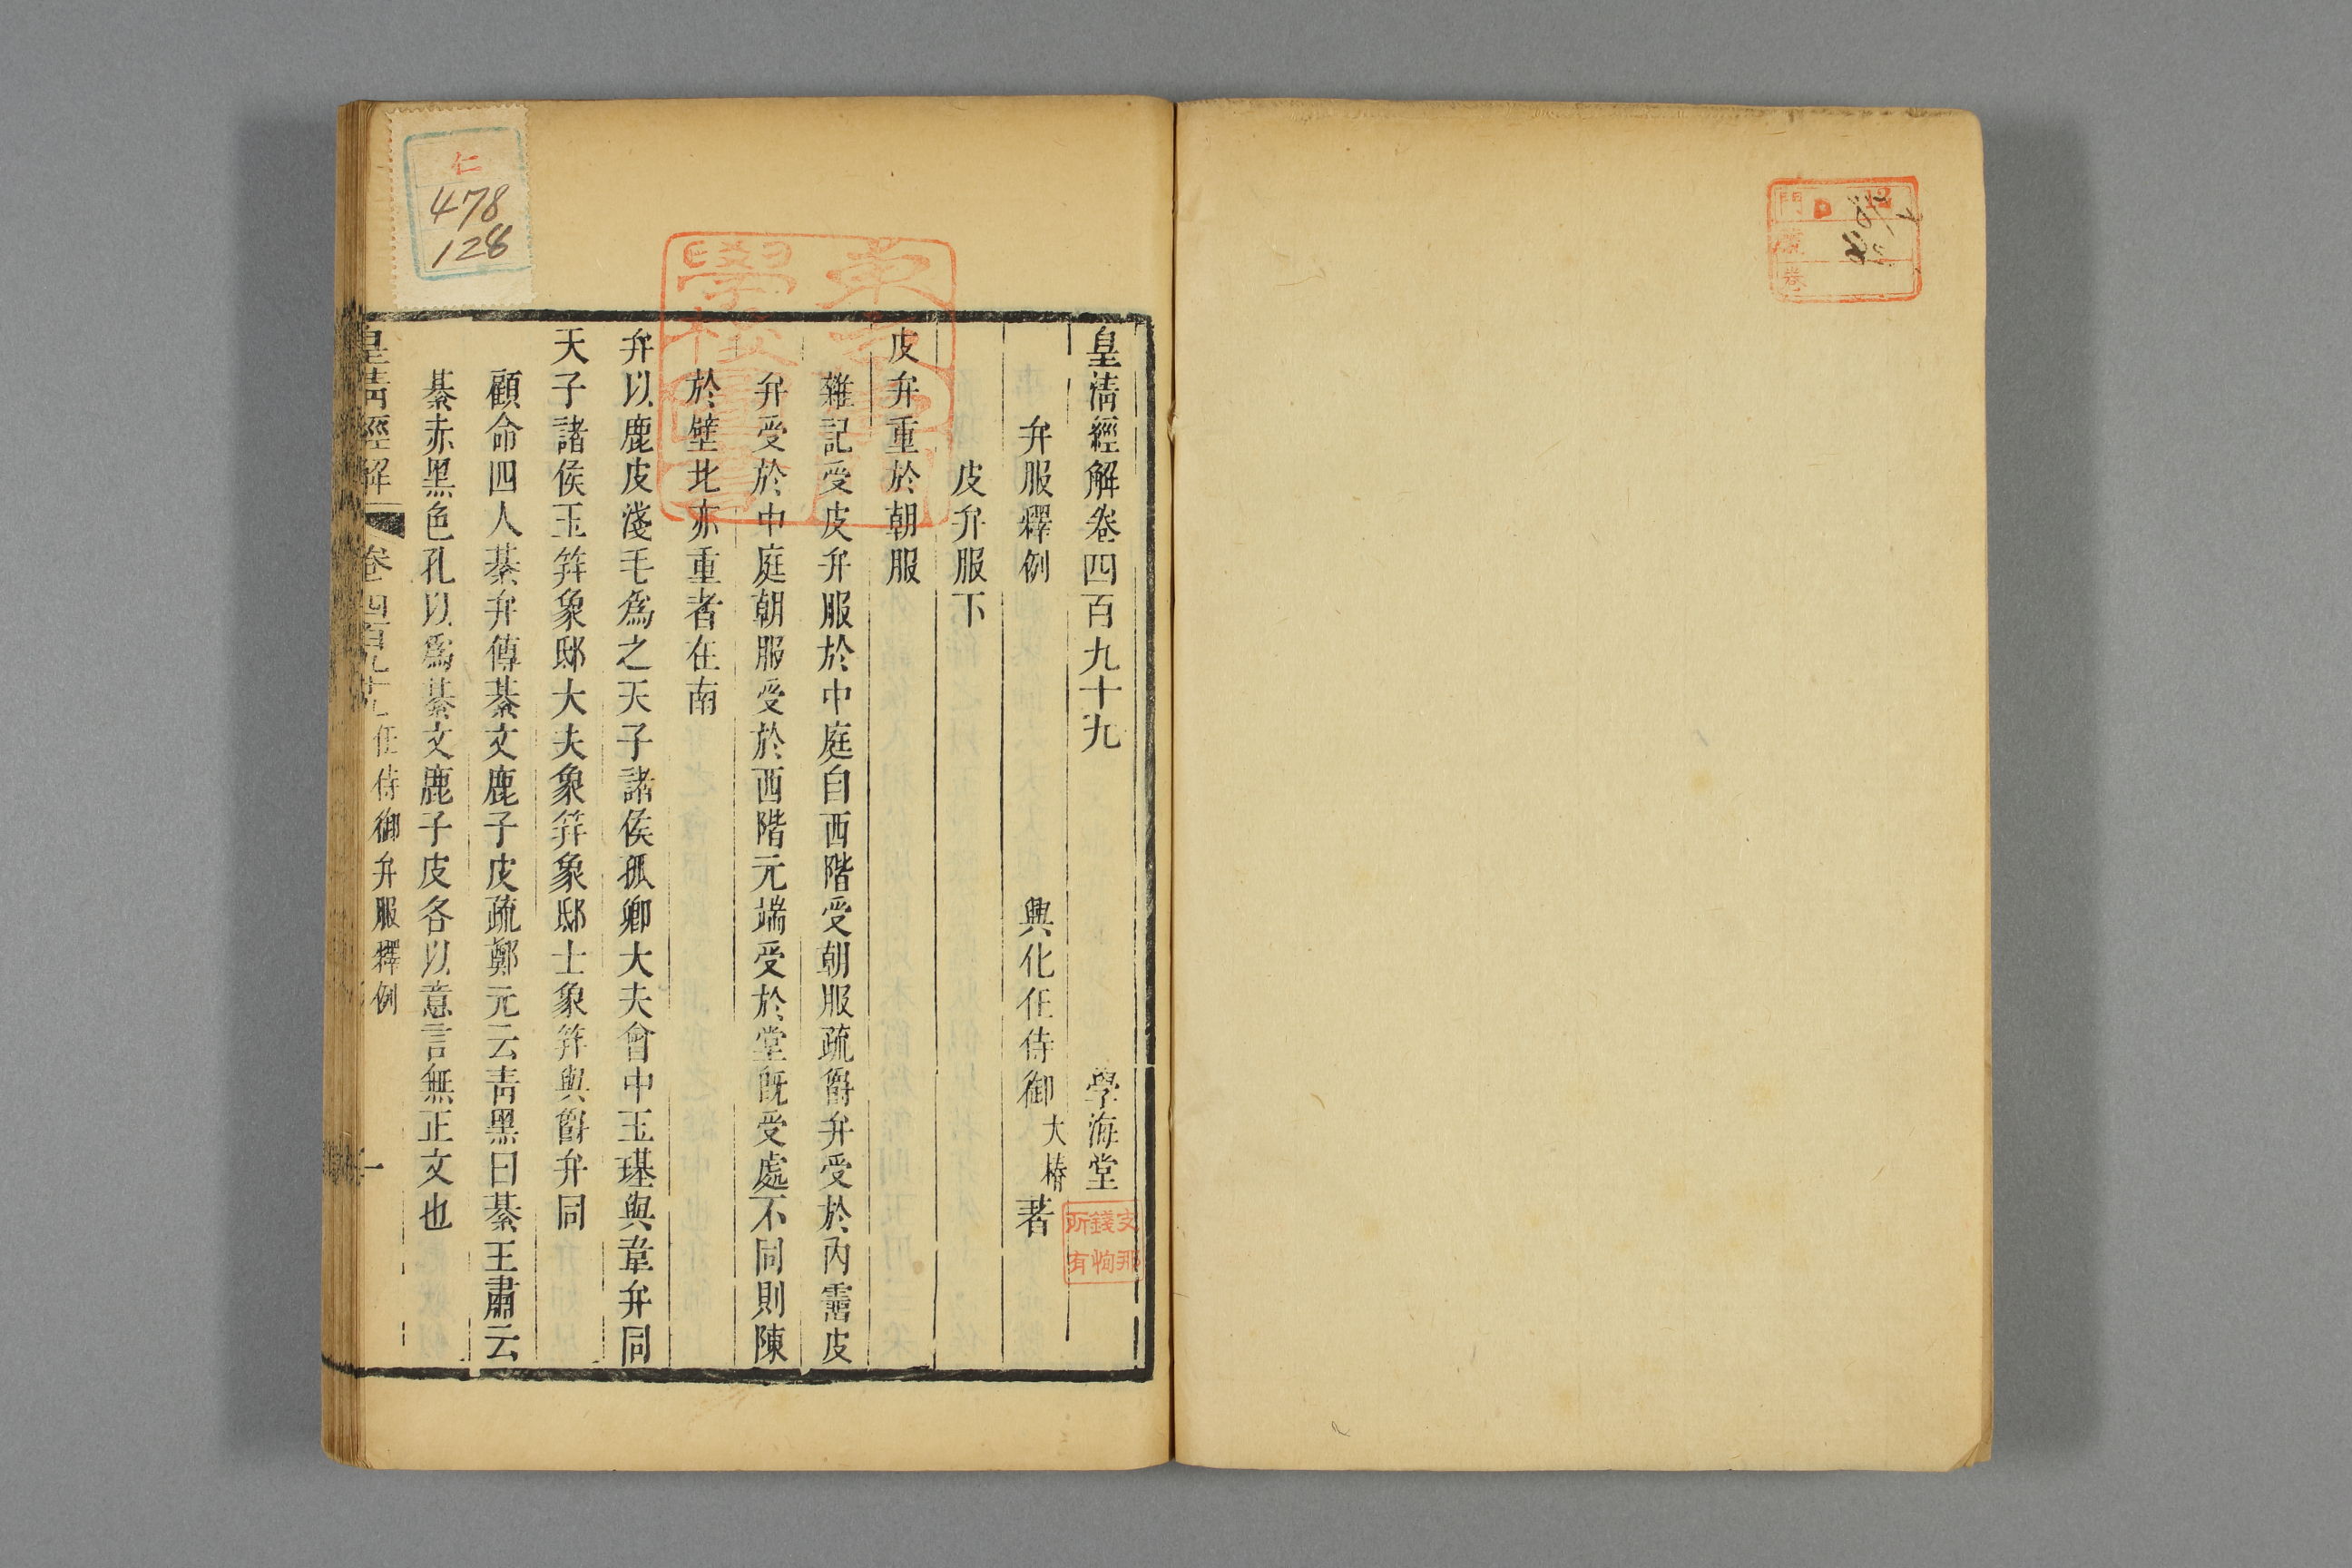 皇清經解卷四百九十九
學海堂
弁服釋例
興化任侍御大椿著
皮弁服下
皮弁重於朝服
雜記受皮弁服於中庭自西階受朝服疏爵弁受於內霤皮
弁受於中庭朝服受於西階元端受於堂旣受處不同則陳
於壁北亦重者在南
弁以鹿皮淺毛爲之天子諸侯孤卿大夫會中玉璂與韋弁同
天子諸侯玉笄象邸大夫象笄象邸士象笄與爵弁同
顧命四人綦弁傳綦文鹿子皮疏鄭元云靑黑曰綦王肅云
綦赤黑色孔以爲綦文鹿子皮各以意言無正文也
皇清經解
卷四百九十九
任侍御弁服釋例
一
支那
錢恂
所有
仁
478
128
門
號
卷